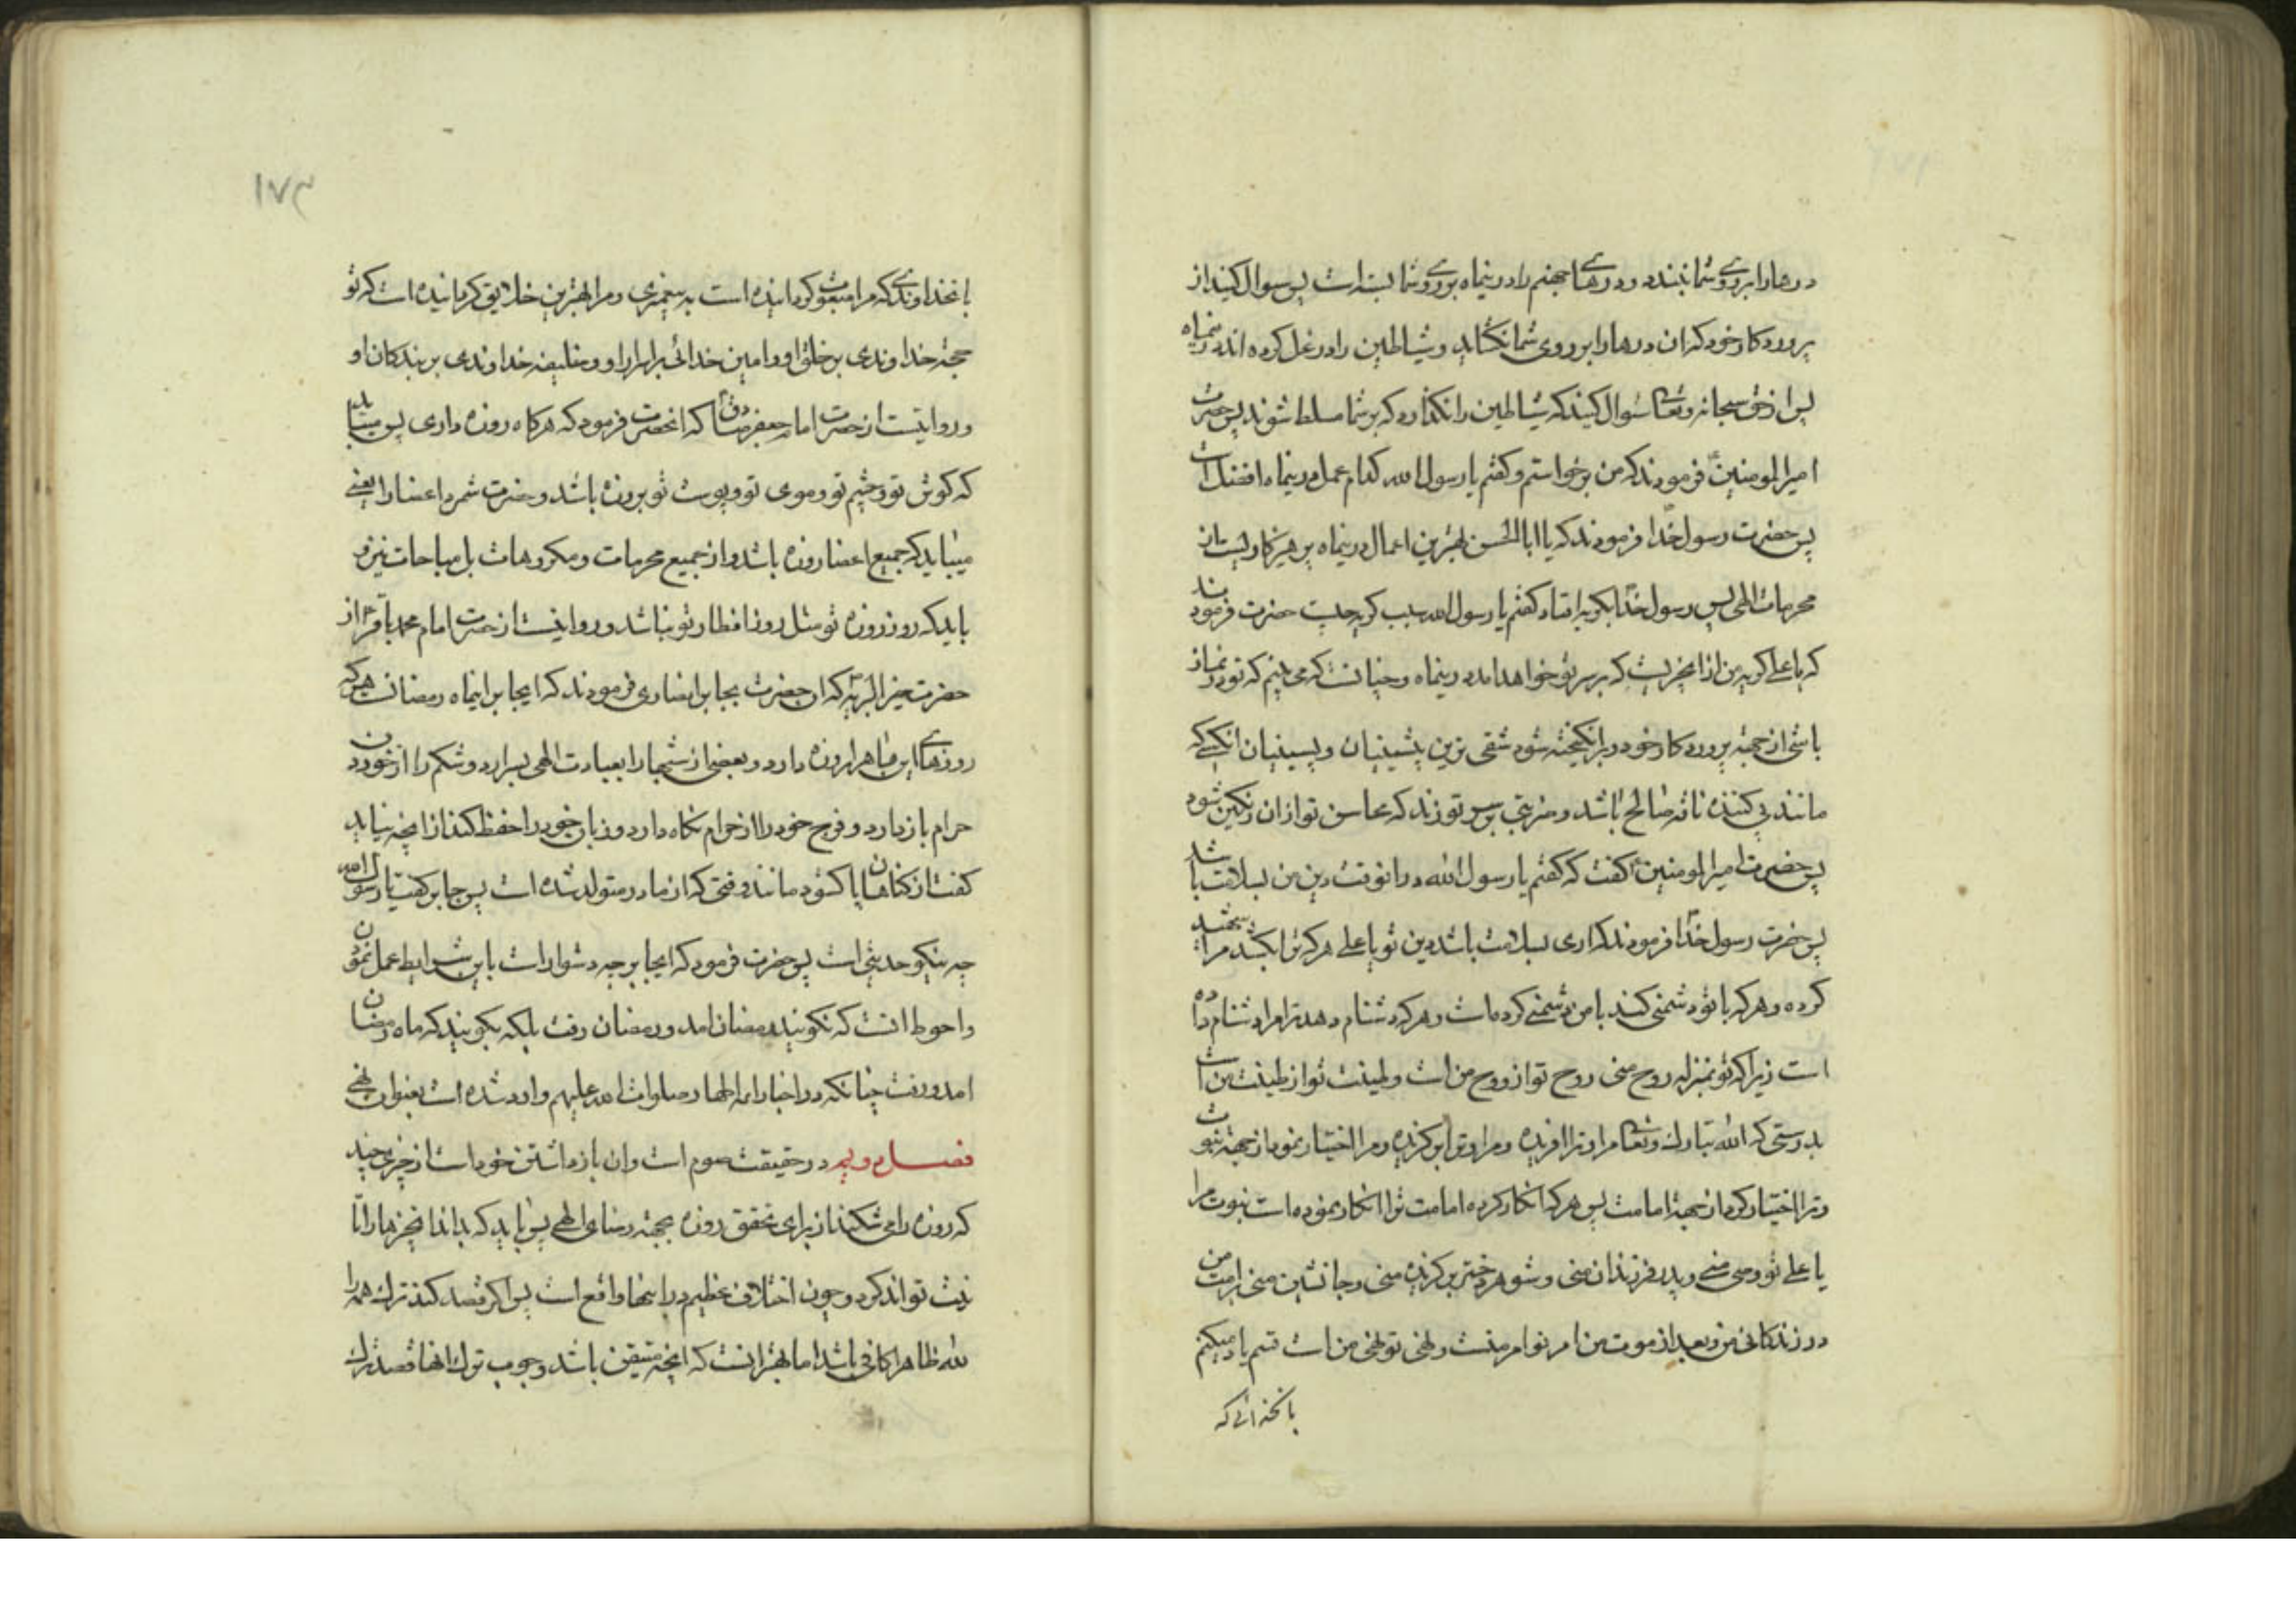 درها را بروی شما نبندد و درهای جهنم را درینماه بر روی شما بسته است پس سوال کنید از
پروردکار خود که ان درها را بر روی شما نکشاید و شیاطین را در غل کرده اند درینماه
پس از حق سبحانه و تعالی سئوال کنید که شیاطین را نکذارد که بر شما مسلط شوند پس حضرت
امیرالمومنین فرمودند که من برخواستم و کفتم یا رسول الله کدام عمل درینماه افضل است
پس حضرت رسول خدا فرمودند که یا ابا الحسن بهترین اعمال درینماه پرهیزکاریست از
محرمات الهی پس رسول خدا بکریه افتاد کفتم یا رسول الله سبب کریه چیست حضرت فرمودند
که یا علی کریه من از انچیزیست که بر سر تو خواهد امد درینماه و چنانست که می بینم که تو در نماز
باشی از جهة پروردکار خود در برانکیخته شود شقی ترین پیشینیان و پسینیان انکسی که
مانند پی کننده ناقه صالح باشد و ضربتی بر سر تو زند که محاسن تو از ان رنکین شود
پس حضرت امیرالمومنین کفت که کفتم یا رسول الله در انوقت دین من بسلامت باشد
پس حضرت رسول خدا فرمودند که اری بسلامت باشد دین تو یا علی هر که ترا بکشد مرا
کرده و هر که با تو دشمنی کند با من دشمنی کرده است و هر که دشنام دهد ترا مرا دشنام داده
است زیرا که تو بمنزله روح منی روح تو از روح من است و طینت تو از طینت من است
بدرستی که الله تبارک و تعالی مرا و ترا افریده و مرا و ترا برکزیده و مرا اختیار نمود از جهة نبوت
و ترا اختیار کرد از جهة امامت پس هر که انکار کرده امامت ترا انکار نموده است نبوت مرا
یا علی تو وصی منی و پدر فرزندان منی و شوهر دختر برکزیده منی و جانشین منی بر امت من
در زندکانی من و بعد از موت من امر تو امر منست و نهی تو نهی من است قسم یاد میکنم
بانخدائی که
۱۷۳
بانخداوندی که مرا مبعوث کردانیده است به پیغمبری و مرا بهترین خلایق کردانیده است که تو
حجة خداوندی بر خلق او و امین خدائی بر اسرار او و خلیفه خداوندی بر بندکان او
و روایتست از حضرت امام جعفر صادق که انحضرت فرمود که هرکاه روزه داری پس میباید
که کوش تو و چشم تو و موی تو و پوست تو بروزه باشد و حضرت شمرد اعضا را یعنی
میباید که جمیع اعضا روزه باشد و از جمیع محرمات و مکروهات بل مباحات نیز و
باید که روز روزه تو مثل روز افطار تو نباشد و روایتست از حضرت امام محمد باقر از
حضرت خیر البریه که ان حضرت بجابر انصاری فرمودند که ایجابر اینماه رمضانست هر که
روزهای این ماه را روزه دارد و بعضی از شبها را بعبادت الهی بسر ارد و شکم را از خوردن
حرام باز دارد و فرج خود را از حرام نکاه دارد و زبان خود را حفظ کند از انچه نباید
کفت از کناهان پاک شود مانند وقتی که از مادر متولد شده است پس جابر کفت یا رسول الله
چه نیکو حدیثی است پس حضرت فرمود که ایجابر چه دشوار است باین شرایط عمل نمودن
و احوط انست که نکویند رمضان امد و رمضان رفت بلکه بکویند که ماه رمضان
امد و رفت چنانکه در اخبار ائمه اطهار صلوات الله علیهم وارد شده است بعنوان نهی
فصل دویم در حقیقت صوم است و ان بازداشتن خود است از چیزی چند
که روزه را می شکند از برای تحقق روزه بجهة رضای الهی پس باید که بداند انچیزها را تا
نیت تواند کرد و چون اختلاف عظیم در اینها واقع است پس اکر قصد کند ترک همه را
لله ظاهرا کافی باشد اما بهتر انست که انچه متیقن باشد وجوب ترک انها قصد ترک